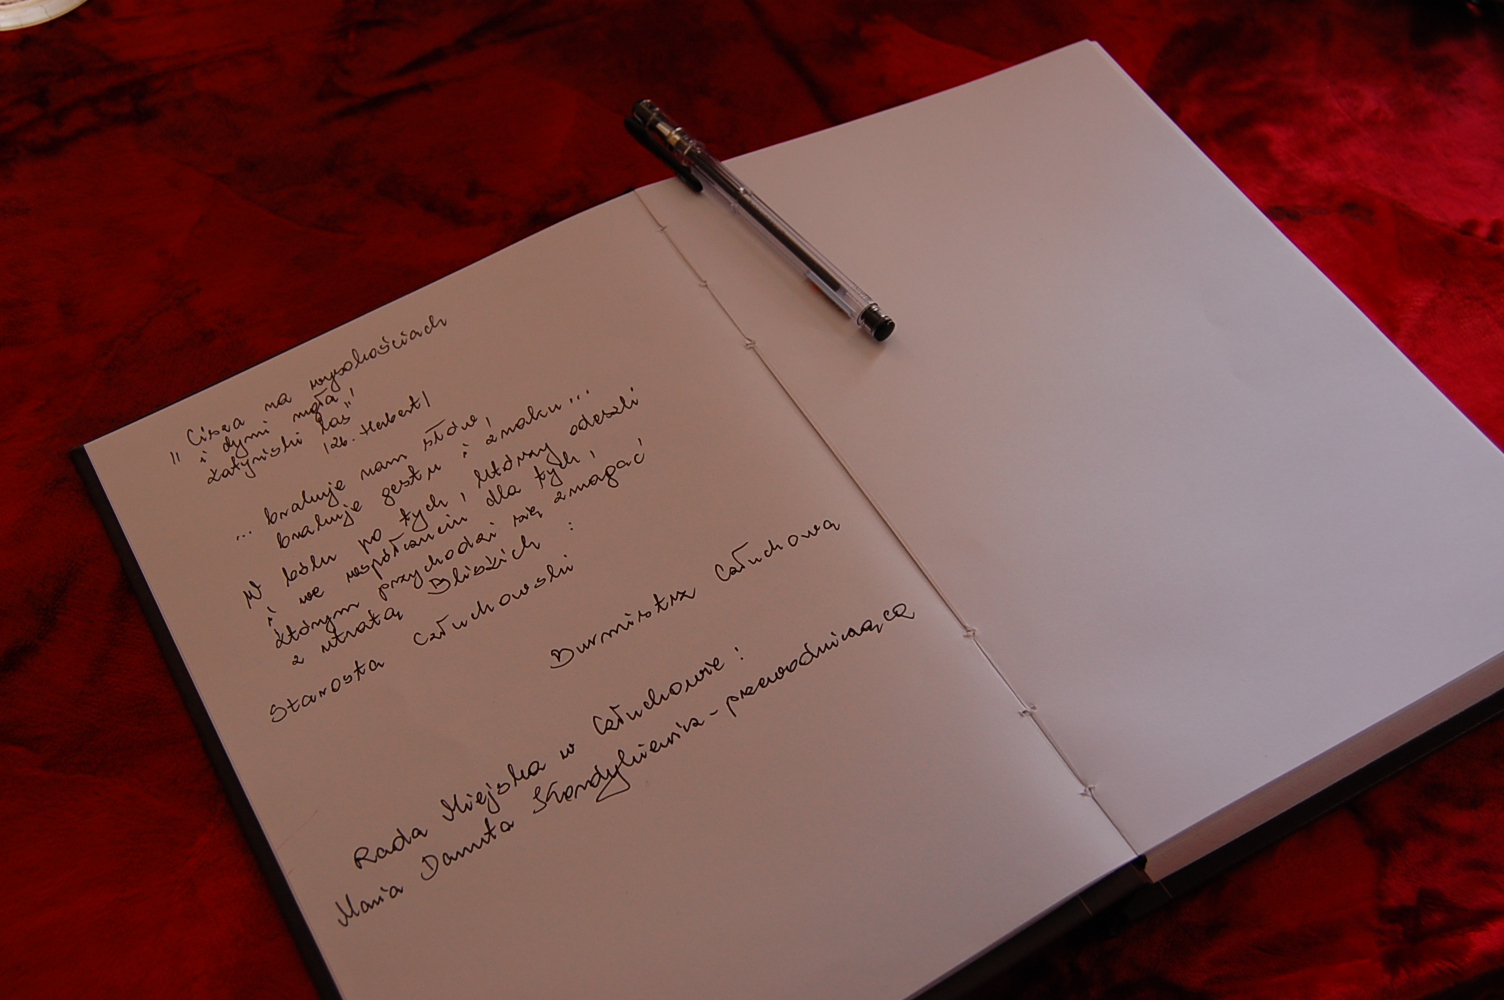 "Cisza na wysokościach
i dymi mgłą,
katyński las"
/Zb. Herbert/
... brakuje nam słów,
brakuje gestu i znaku...
W bólu po tych, którzy odeszli
i we współczuciu dla tych,
którym przychodzi się zmagać
z utratą Bliskich :
Starosta Człuchowski
Burmistrz Człuchowa
Rada Miejska w Człuchowie :
Maria Danuta - przewodnicząca